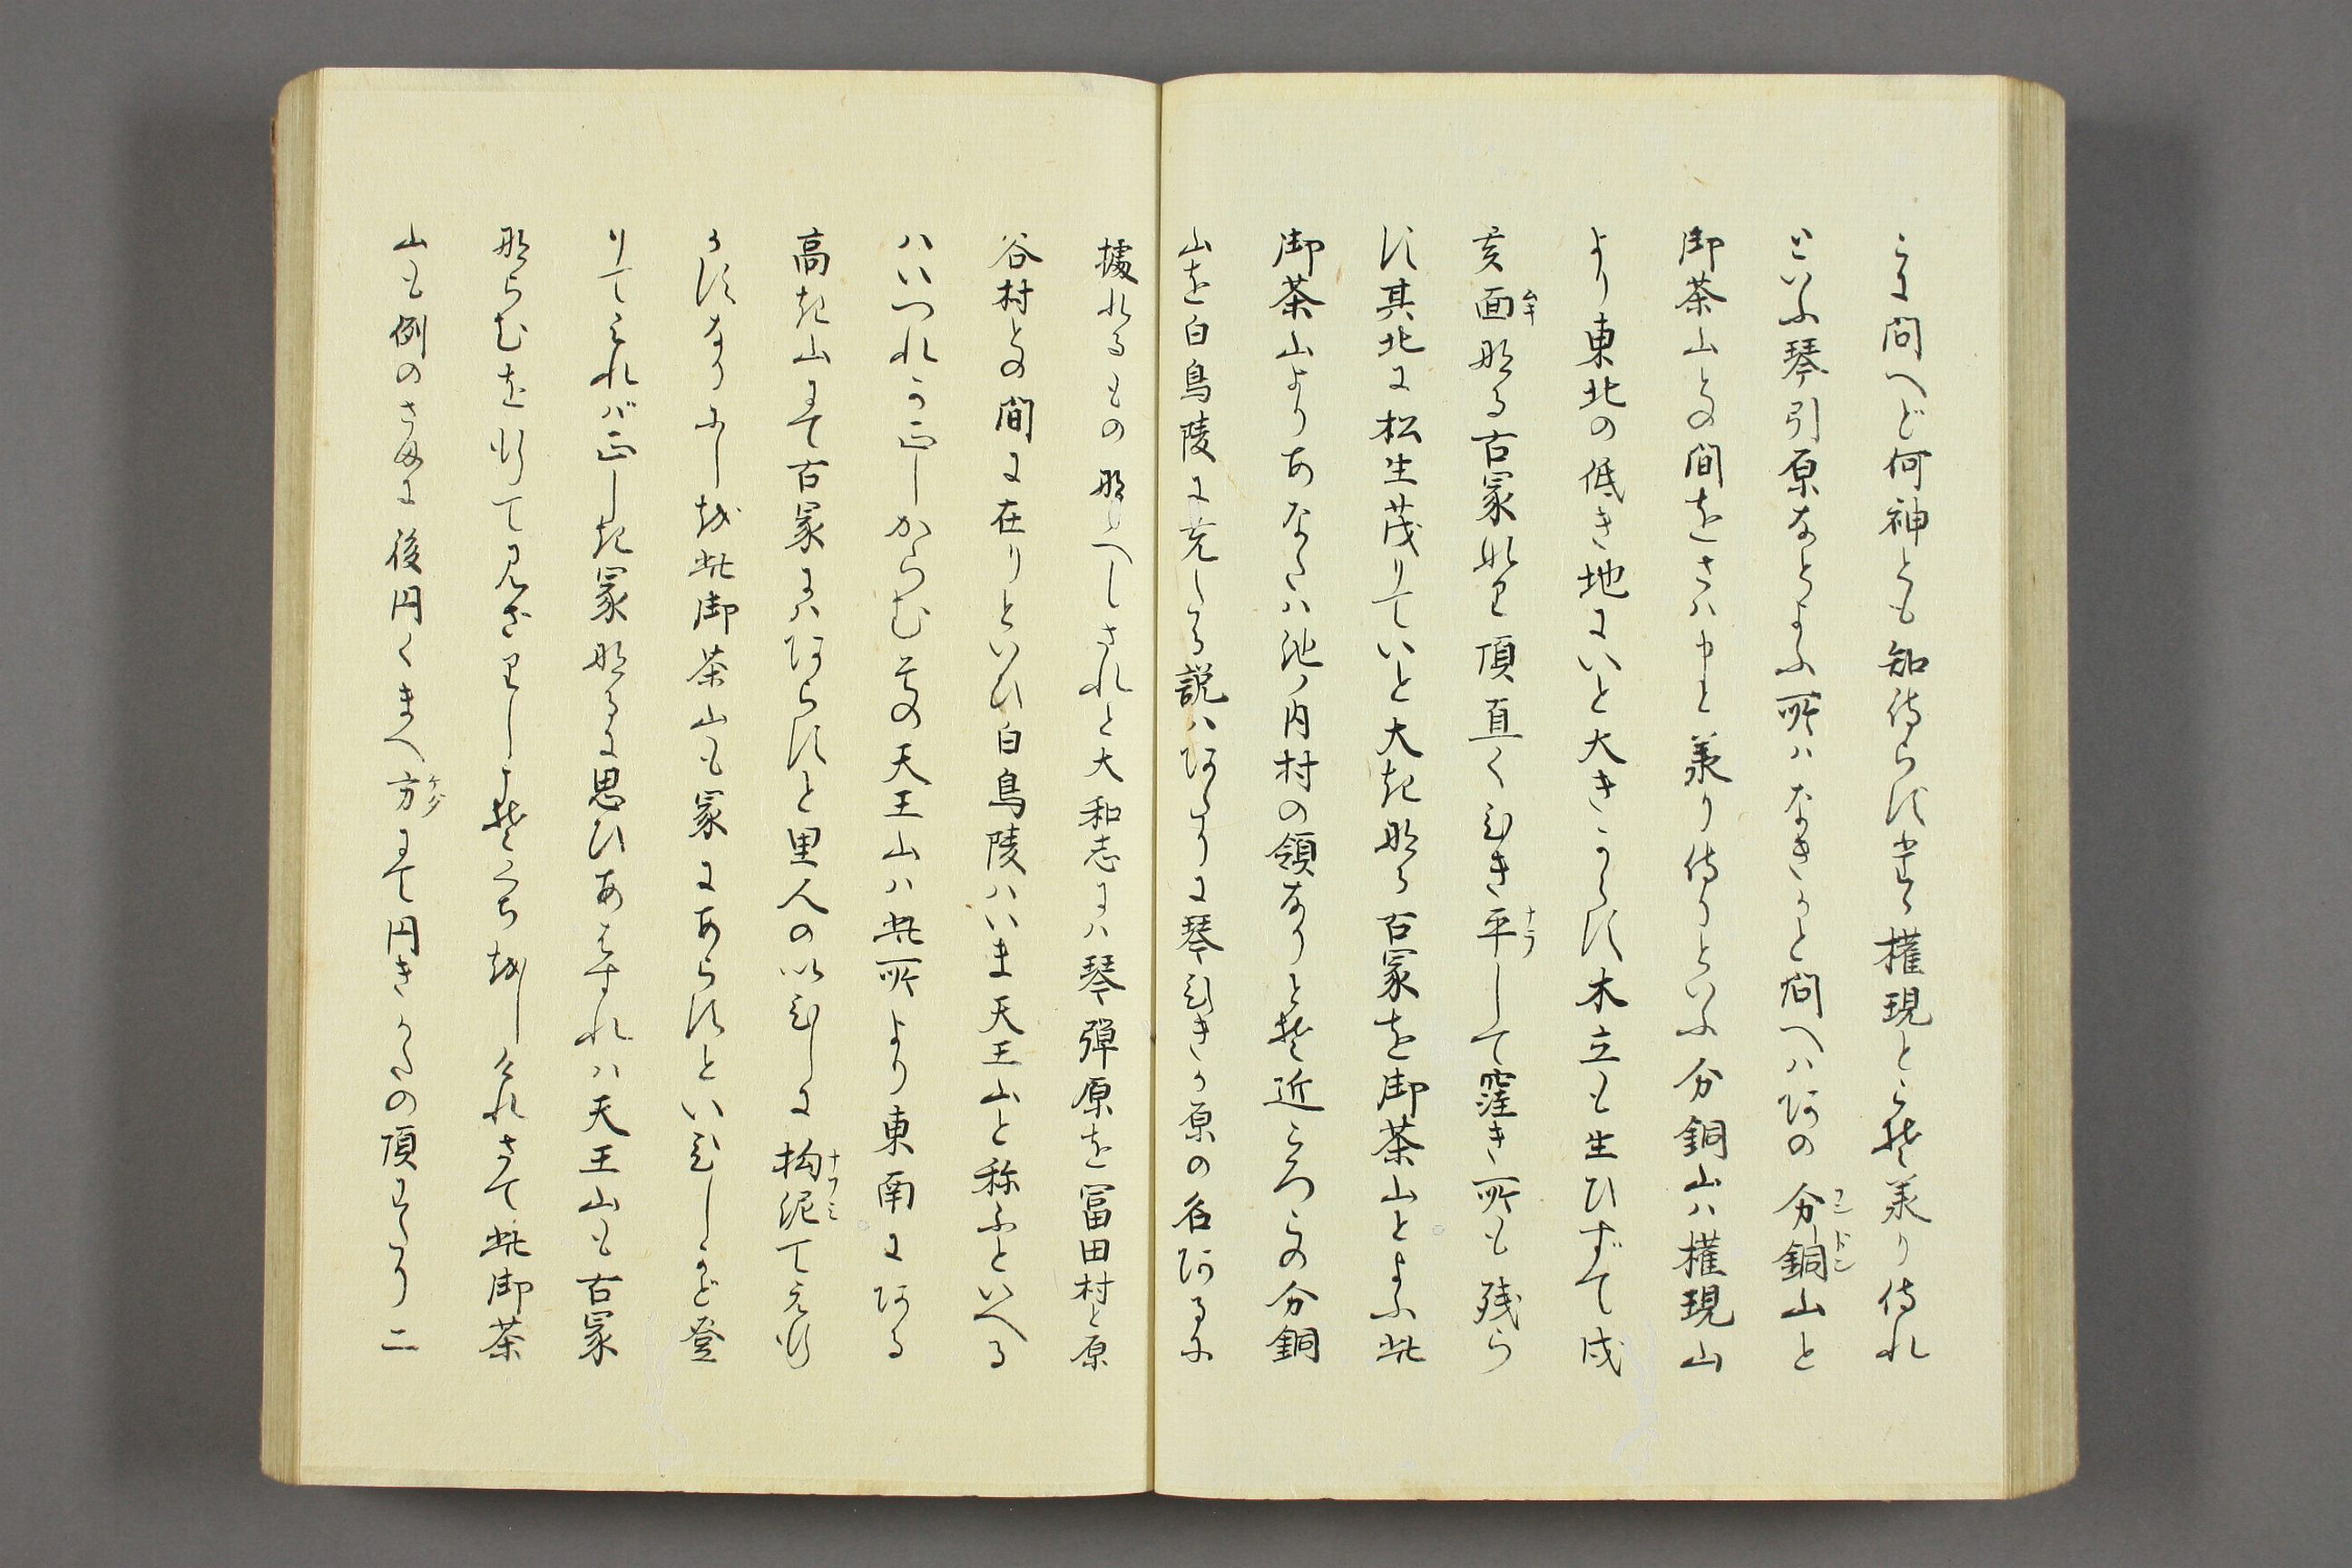 こに問へど何神とも知侍らず堂を權現とそ美り侍れ
といふ琴引原なとよふ所ハなきかと問へハ阿の分銅山と
御茶山との間をさハ申と美り侍りといふ分銅山ハ權現山
より東北の低き地にいと大きからす木立も生ひずて戌
亥面ムキなる古冡なり頂直くひき平ナラして窪き所も残ら
す其北に松生茂りていと大きなる古冡を御茶山とよふ此
御茶山よりあなたハ池ノ内村の領なりとそ近ころこの分銅
山を白鳥陵に充たる説ハ阿たりに琴ひきか原の名阿るに
據れるものなるへしされと大和志にハ琴彈原を冨田村と原
谷村との間に在りといひ白鳥陵ハいま天王山と称ふといへる
ハいつれか正しからむその天王山ハ此所より東南に阿る
高き山にて古冡にハ阿らすと里人のいひしに拘泥ナツミてえ行
かすなりにしを此御茶山も冡にあらすといひしかど登
りてみれバ正しき冡なるに思ひあはすれハ天王山も古冡
ならむを行て見ざりしそくちをしけれさて此御茶
山も例のさまに後円くまへ方ケタにて円きかたの頂にたり二